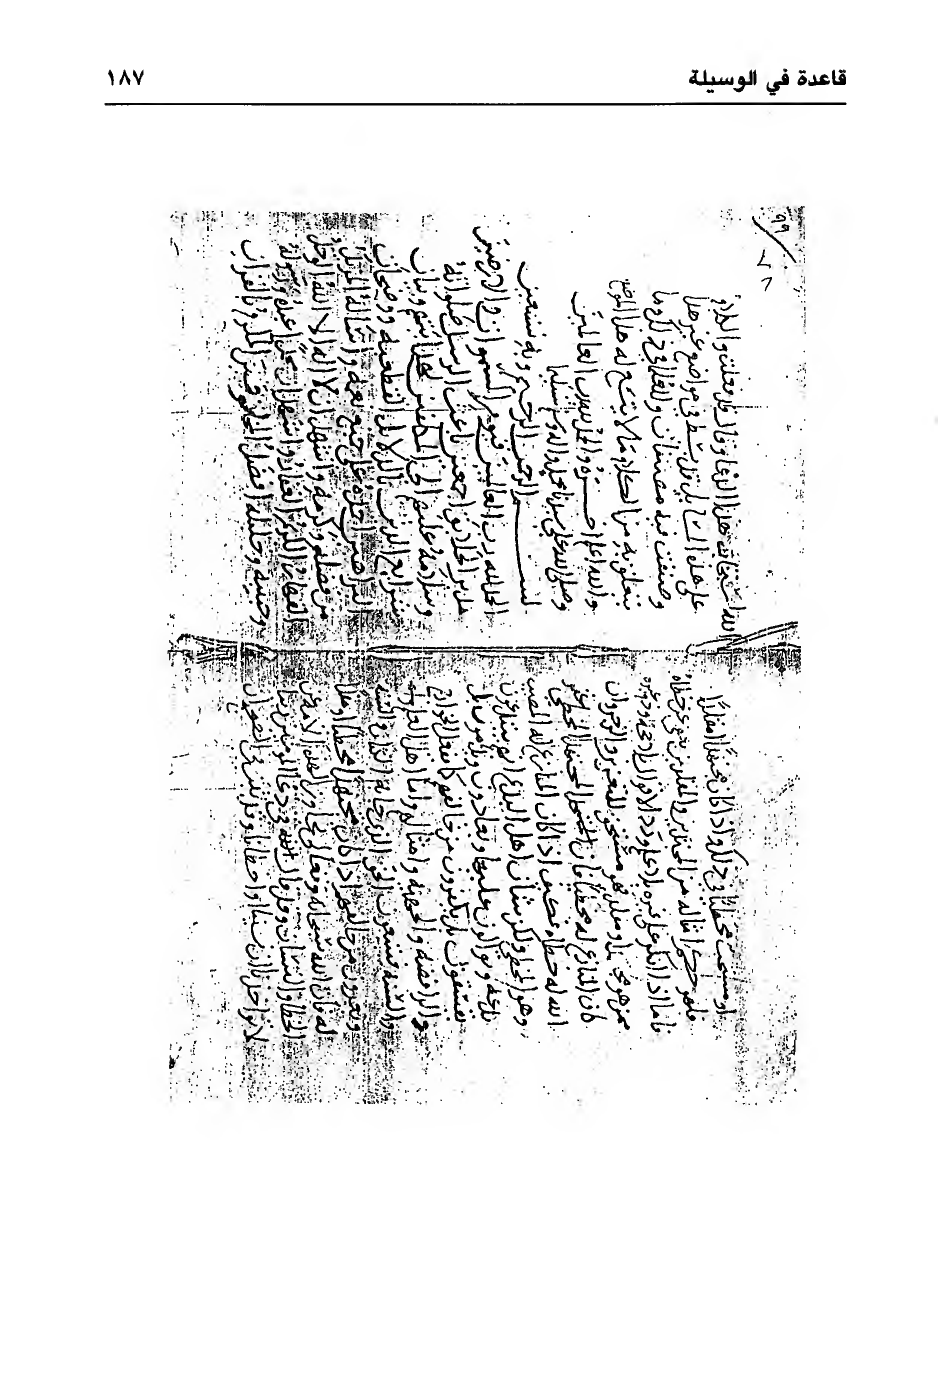 قاعدة في الوسيلة
١٨٧
مخطئا في ذلك واذا كان مجتهدا او مقلدا
حكم امثاله من المجتهدين والمقلدين يعفى عن خطاه
فاما اذا انكر على غيره بلا علم ورد الاقوال بلا حجة وذم غيره
ممن هو مجتهد او مقلد فهو مستحق للتعزير والزجر وان
كان المنازع له مخطئا فان المجتهد المخطئ غفر
الله له خطاه فكيف اذا كان المنازع له المصيب
وهو المخطئ ولكن شان اهل البدع انهم
ويوالون عليها ويعادون ويذمون بل
يفسقون بل يكفرون من خالفهم كما يفعل الخوارج
والرافضة والجهمية وامثالهم واما اهل العلم
والسنة فيتبعون الحق الذي جاء به الكتاب والسنة
ويعذرون من خالفهم اذا كان مجتهدا مخطئا او مقلدا
له فان الله سبحانه وتعالى تجاوز لهذه الامة عن
الخطا والنسيان وقد قال الله في دعا المؤمنين ربنا
لا تواخذنا ان نسينا او اخطانا وقد ثبت في الصحيح ان
الله استجاب هذا الدعا وقال قد فعلت والكلام
على هذه المسائل قد بسط في مواضع غير هذا
وصنفت فيه مصنفات في ذلك وما
يتعلق به من الكلام ما لا يتسع له هذا الموضع
والله اعلم اخره والحمد لله رب العالمين
وصلى الله على سيدنا محمد واله وسلم تسليما
بسم الله الرحمن الرحيم وبه نستعين
الحمد لله رب العالمين قيوم السموات والارضين
مدبر الخلائق اجمعين باعث الرسل صلواته
وسلامه عليهم الى المكلفين لهدايتهم وبيان
شرائع الدين بالدلائل القطعية وواضحات
البراهين احمده على جميع نعمه واساله المزيد
من فضله وكرمه واشهد ان لا اله الا الله الواحد
القهار الكريم الغفار واشهد ان محمدا عبده ورسوله
وحبيبه وخليله افضل المخلوقين المكرم بالقران